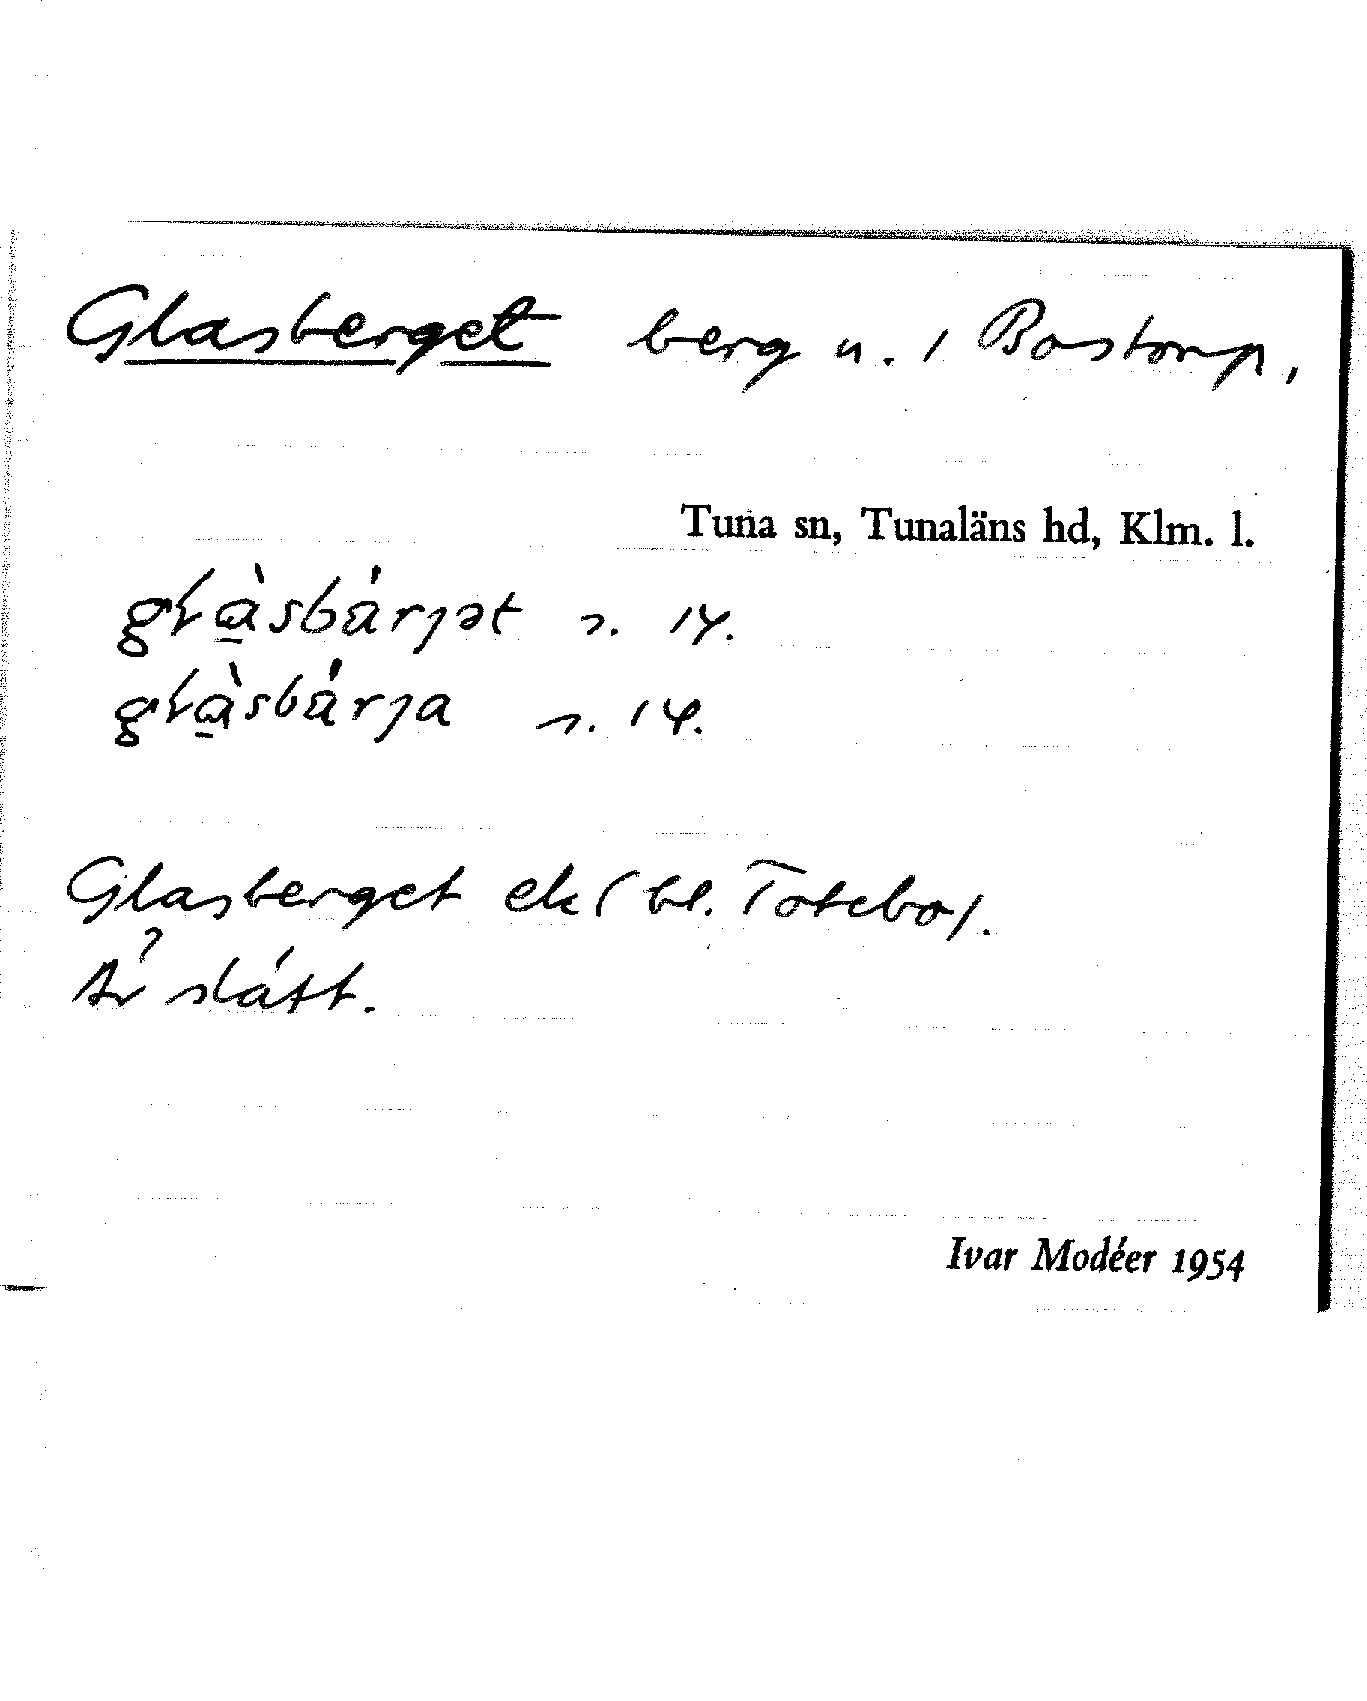 Glasberget berg n. i Bostorp,
Tuna sn, Tunaläns hd, Klm. l.
gɫà̠sbá̈rjət s. 14.
gɫà̠sbá̈rja s. 14.
Glasberget ek (bl. Totebo).
Är slätt.
Ivar Modéer 1954